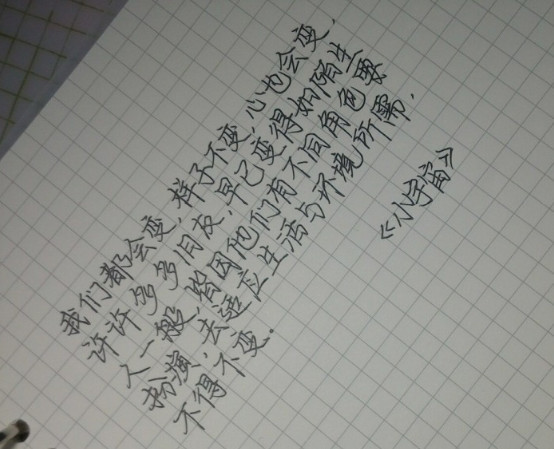 我们都会变,样子不变,心也会变,
许许多多旧友,早已变得如陌生
人一般,皆因他们有不同角色要
扮演,去适应生活与环境所需,
不得不变。
《小宇宙》